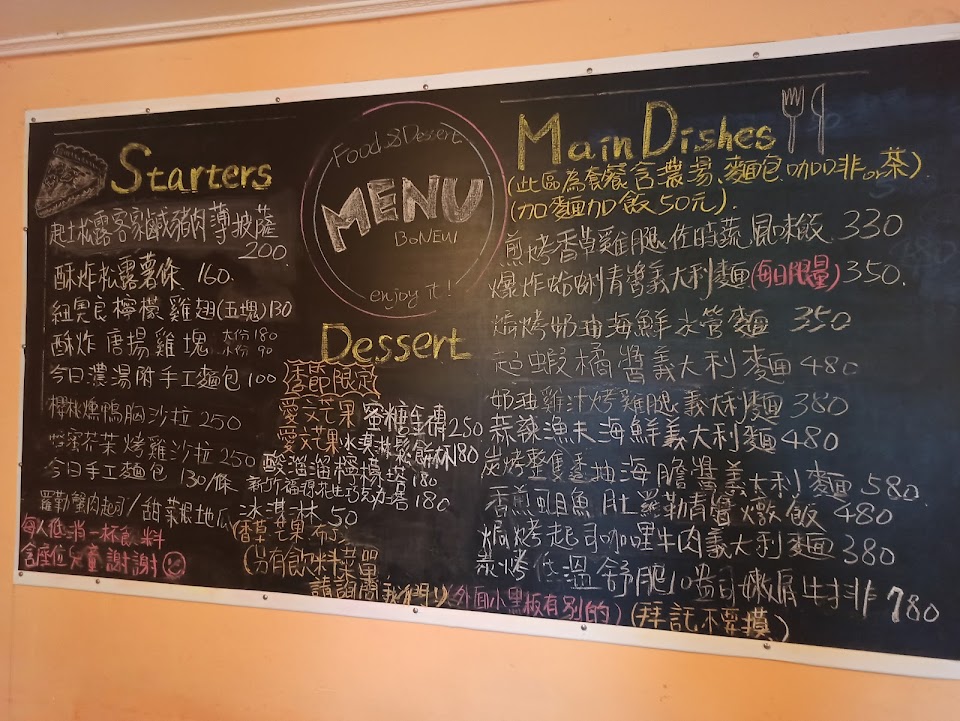 Starters
起士松露客家鹹豬肉薄披薩
200
酥炸松露薯條 160
紐奧良檸檬雞翅(五塊)130
酥炸唐揚雞塊 大份180
小份 90
今日濃湯附手工麵包 100
櫻桃燻鴨胸沙拉 250
蜂蜜芥茉烤雞沙拉 250
今日手工麵包 130/條
羅勒蟹肉起司/甜菜根地瓜
每人低消一杯飲料
含座位兒童謝謝
Food & Dessert
MENU
BoNEW
enjoy it!
Dessert
季節限定
愛文芒果蜜糖土磚250
愛文芒果冰淇淋鬆餅180
酸溜溜檸檬塔 180
新竹福源花生巧克力塔 180
冰淇淋 50
(香草.芒果.布丁)
(另有飲料菜單
請詢問我們!)
(外面小黑板有別的)
(拜託不要摸)
Main Dishes
(此區為套餐含濃湯、麵包.咖啡or茶)
(加麵加飯50元).
煎烤香草雞腿佐時蔬. 330
爆炸蛤蜊青醬義大利麵(每日限量)350.
焗烤奶油海鮮水管麵 350
起蝦橘醬義大利麵 480
奶油雞汁烤雞腿義大利麵 380
蒜辣漁夫海鮮義大利麵 480
炭烤整隻透抽海膽醬義大利麵 580
香煎鮋魚肚羅勒青醬燉飯 480
焗烤起司咖哩牛肉義大利麵 380
炭烤低溫舒肥10盎司嫩肩牛排 780